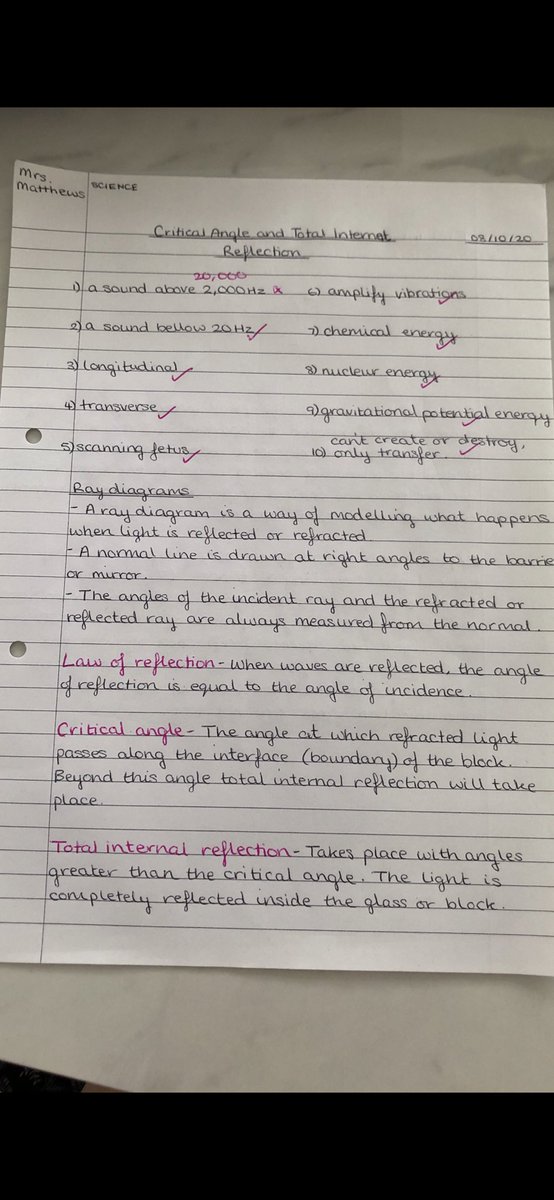 Mrs.
Matthews
SCIENCE
Critical Angle and Total Internet
Reflection
08/10/20
20,000
1) a sound above 2,000Hz x
6) amplify vibrations
2) a sound bellow 20Hz
7) chemical energy
3) longitudinal
8) nucleur energy
4) transverse
9) gravitational potential energy
5) scanning fetus
can't create or destroy,
10) only transfer.
Ray diagrams
- A ray diagram is a way of modelling what happens
when light is reflected or refracted
- A normal line is drawn at right angles to the barrie
or mirror.
- The angles of the incident ray and the refracted or
reflected ray are always measured from the normal.
Law of reflection - When waves are reflected, the angle
of reflection is equal to the angle of incidence.
Critical angle - The angle at which refracted light
passes along the interface (boundary) of the block.
Beyond this angle total internal reflection will take
place.
Total internal reflection - Takes place with angles
greater than the critical angle. The light is
completely reflected inside the glass or block.